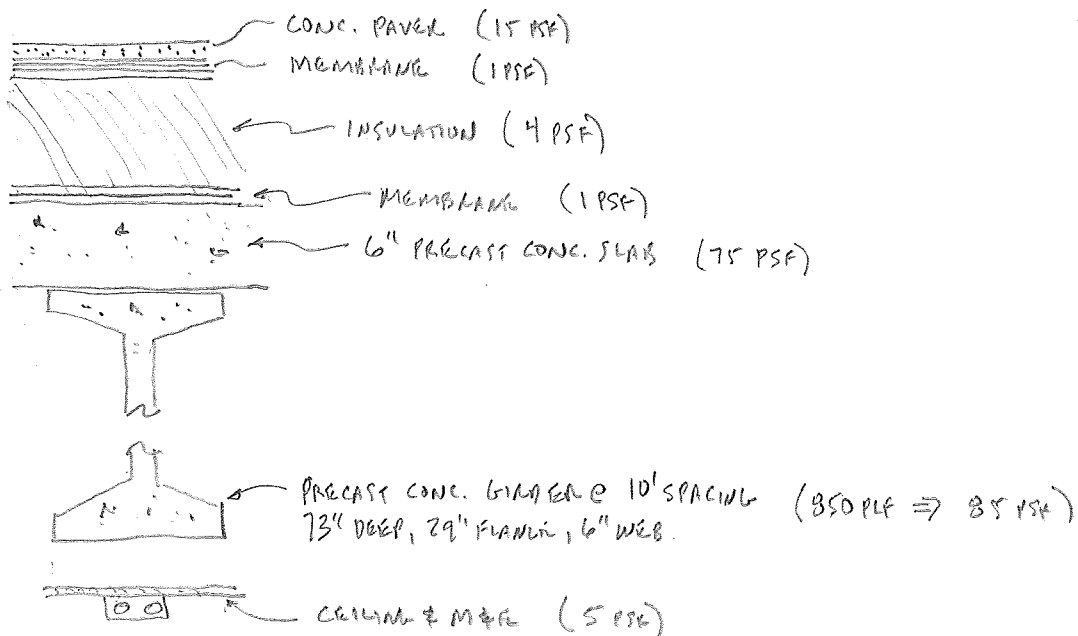 CONC. PAVER (15 PSF)
MEMBRANE (1 PSF)
INSULATION (4 PSF)
MEMBRANE (1 PSF)
6" PRECAST CONC. SLAB (75 PSF)
PRECAST CONC. GIRDER @ 10' SPACING (850 PLF => 85 PSF)
73" DEEP, 29" FLANGE, 6" WEB.
CEILING & M&E (5 PSF)